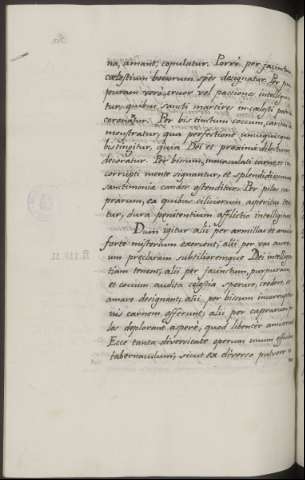 na, amant, copulatur. Porrò per jacintum
cœlestium bonorum spes designatur. Per pur-
puram verò, cruor vel passione intelligi-
tur, quibus sancti martires in cœlesti patria
coronantur. Per bis tinctum coccum, caritas de-
monstratur, qua perfectione unusquisque
bis tingitur, quia Dei et proximi dilectione
decoratur. Per bissum, immaculati carne et in-
corrupti mente signantur, et splendidissimus
sanctimonia candor ostenditur. Per pilos ca-
prarum, ex quibus ciliciorum asperitas
tur, dura penitentium afflictio intelligitur.
Dum igitur alii per armillas et annulos
forte misterium exercent; alii per
um præclarum subtiliorem que Dei intelligen-
tiam tenent; alii per jacintum, purpuram,
et coccum audita celestia sperare, credere, et
amare designant; alii per bissum incorruptio-
nis carnem offerunt; alii per caprarum pi-
los deplorant asperè, quod libenter amiserunt
Ecce tanta diversitate operum unum efficitur
tabernaculum, sicut ex diverso pulvere